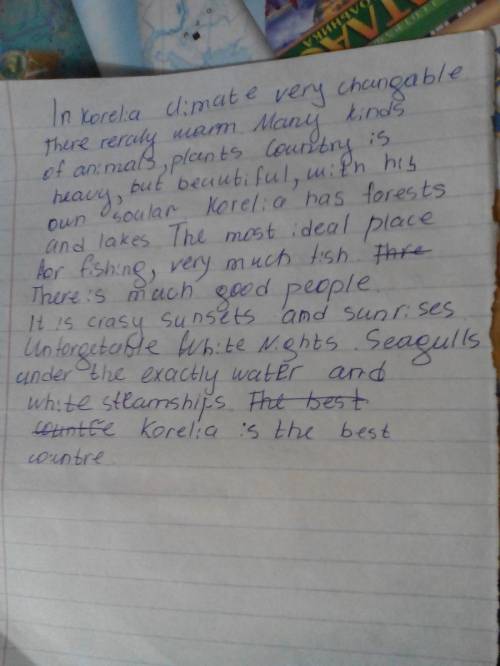 In Korelia climate very changable
there reraly warm Many kinds
of animals, plants Country is
heavy, but beautiful, with his
own soular Korelia has forests
and lakes The most ideal place
for fishing, very much fish Thre
There is much good people.
It is crasy sunsets and sunrises
Unforgetable White Nights. Seagulls
under the exactly water and
white steamships The best
countre Korelia is the best
countre